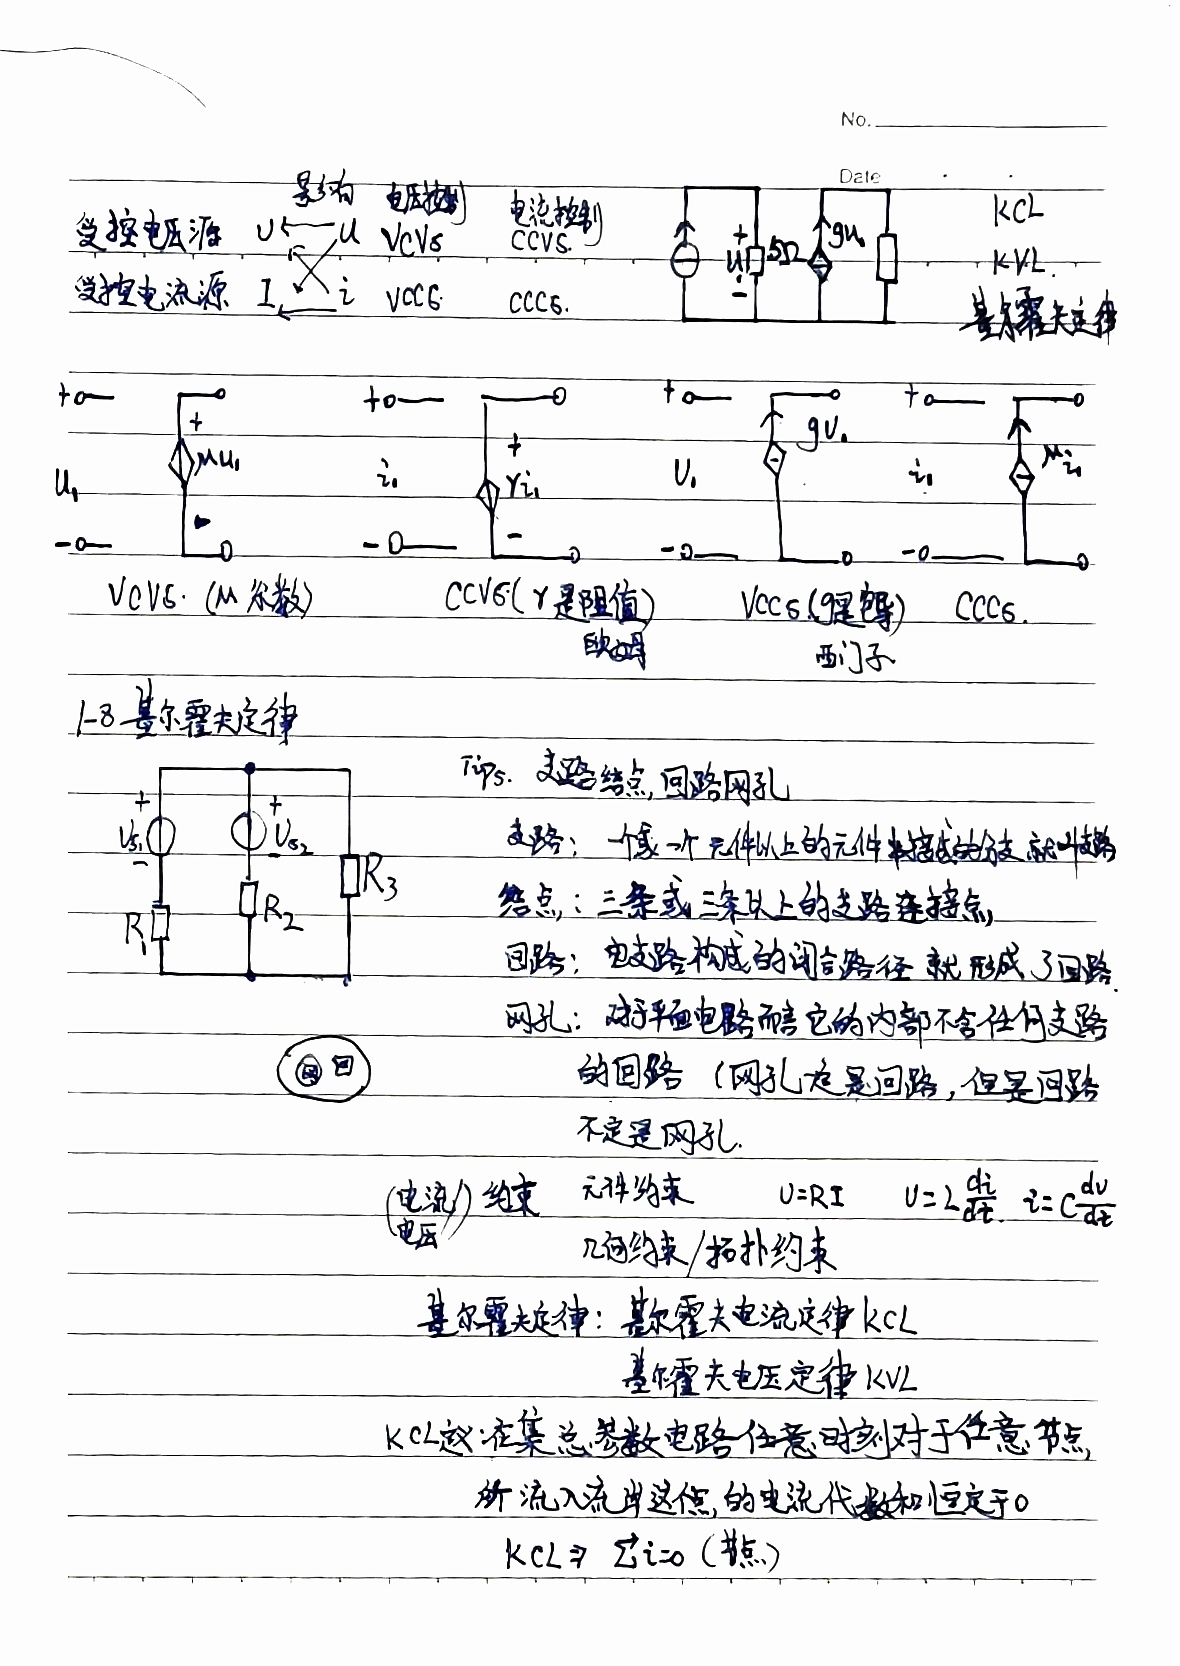 No.
Date
影响 电压控制 电流控制
受控电压源 U u VCVS CCVS.
受控电流源 I i VCCS. CCCS.
+ U - 5Ω gu.
KCL
KVL.
基尔霍夫定律
+ + + + +
U₁ μu₁ i₁ ri₁ U₁ gU₁ i₁ μi₁
- - - - -
VCVS. (μ 系数) CCVS (r 是阻值) VCCS (g是电导) CCCS.
欧姆 西门子
1-8 基尔霍夫定律
Tips. 支路结点,回路网孔
+ Vs₁ - + Us₂ - R₁ R₂ R₃
支路: 一个或一个元件以上的元件串接成的分支就叫支路
结点: 三条或三条以上的支路连接点,
回路: 由支路构成的闭合路径 就形成了回路.
网孔: 对于平面电路而言它的内部不含任何支路
的回路 (网孔一定是回路, 但是回路
不定是网孔.
网 回
(电流/电压) 约束 元件约束 U=RI U=L di/dt. i=C du/dt
几何约束/拓扑约束
基尔霍夫定律: 基尔霍夫电流定律 KCL
基尔霍夫电压定律 KVL
KCL定义:在集总参数电路任意时刻对于任意节点,
所流入流出这点,的电流代数和恒定于0
KCL⇒ Σi=0 (节点)